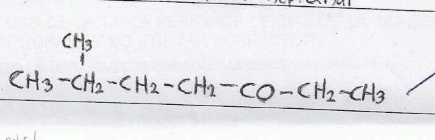 CH3
CH3-CH2-CH2-CH2-CO-CH2-CH3